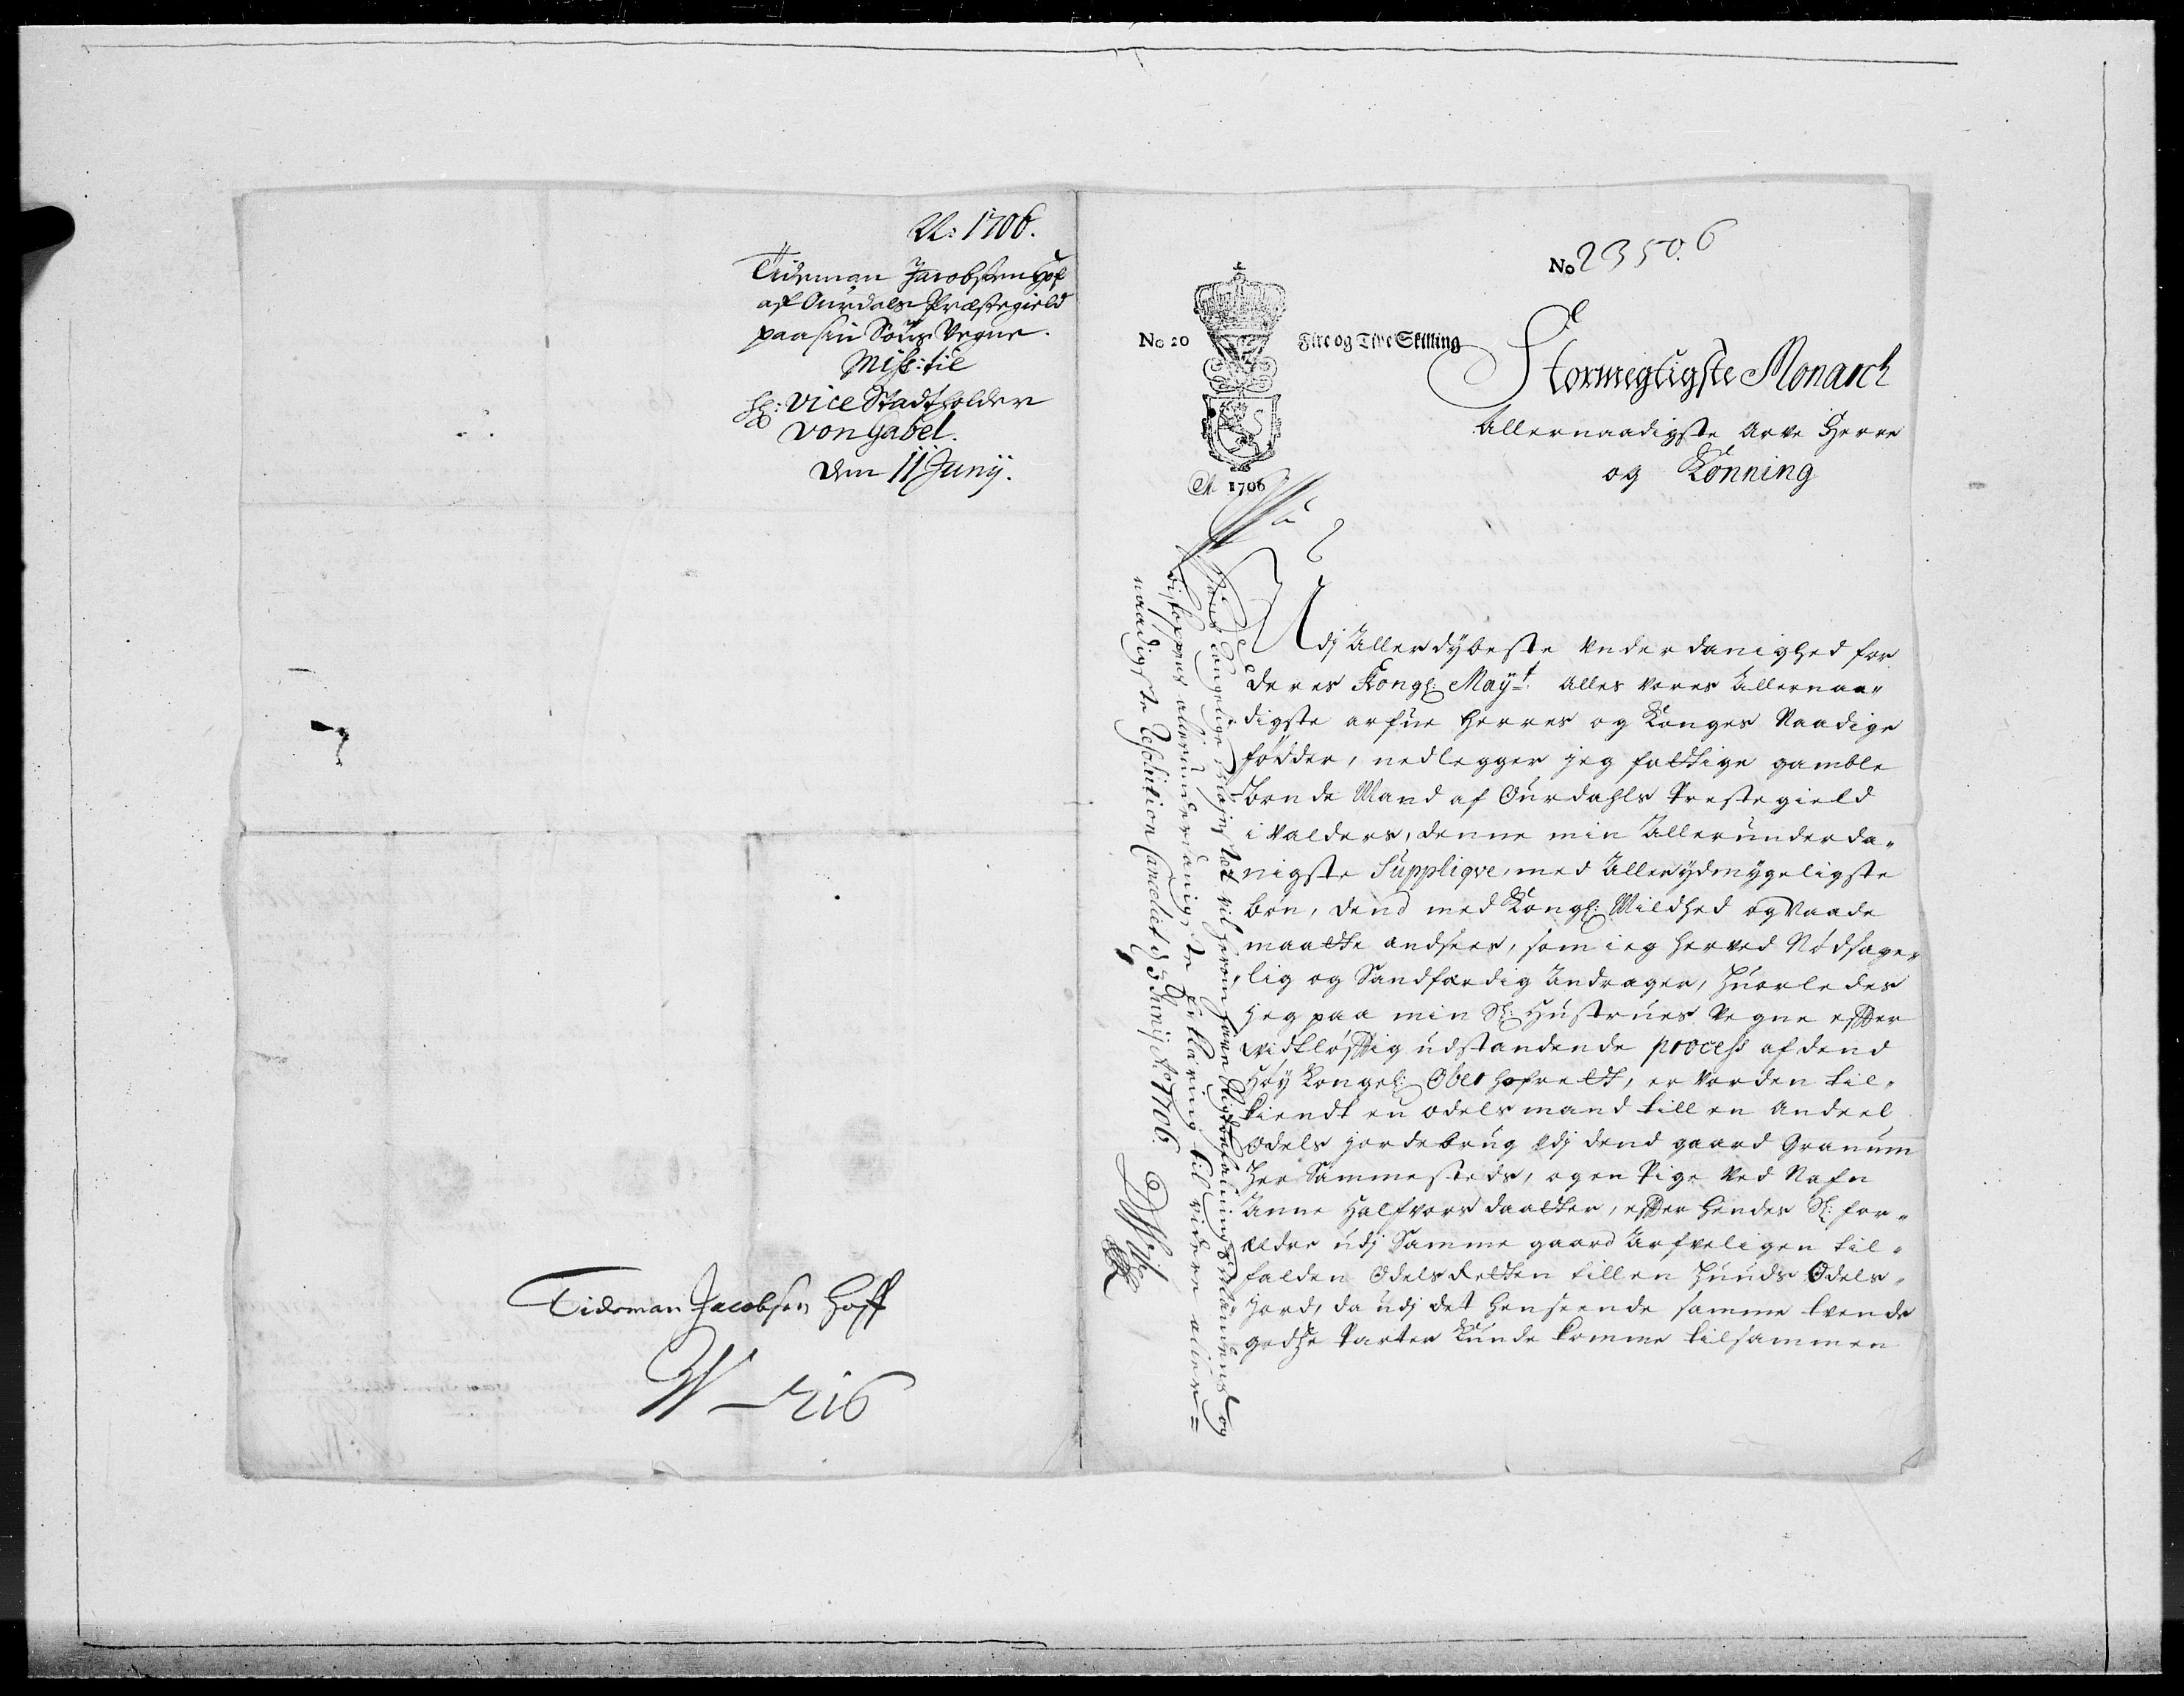 A: 1706.
Tideman Jacobsen Hof
aff Ourdals Præstegield
paa sin Søns Vegne.
Miss: til
H: Vice Stadtholder
von Gabel.
den 11 Junij.
Tideman Jacobsen Hoff
No 23506
No 20
Fire og Tive Skilling
1706
Stormegtigste Monarch
Allernaadigste Arve Herre
og Konning
Udj Allerdybeste underdanighed for
deres Kongl: Mayt: Alles vores Allernaa„
digste arfue Herres og Konges Naadige
fødder, nedlegger jeg fattige gamble
bonde Mand af Ourdahls Prestegield
i Valders, denne min Allerúnderda„
nigste Supplique, med Allerydmygeligste
bøn, dend med Kongl: Mildhed og Naade
maatte andsees, som ieg herved Nødsage„
lig og Sandfærdig Andrager, húorledes
jeg paa min Sl: Hústrúes Vegne effter
vidtløfftig údstandende process af dend
Høy Kongel: Ober hofrett, er vorden til„
kiendt en odels mand till en Andeel
odels jordebrúg udj dend gaard Granum
her Sammesteds, og en Pige ved Nafn
Anne Halfvors daatter, effter hendes Sl: for„
ældre údj Samme gaard Arfveligen til„
falden Odels Retten till en húúds Odels„
jord, da údj det henseende samme tvende
godze Parter kúnde komme tilsammen
Deris Kongelige Majestæt vil herom høre Vigtoufaming Stiftamtmands og
bisKoppens allerunderdanigste Erklæring til videre aller=
naadigste Resolution Cancelliet d 5 Junij Ao 1706.